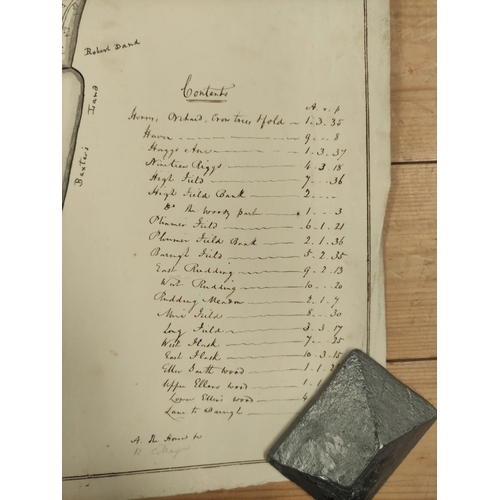 Robert Dand
Baxter's Land
Contents
A. r. p
House, Orchard, Crowtrees & fold - 1. 3. 35
Haver - 9 .. 8
Haggs - 1. 3. 37
Nineteen Riggs - 4. 3. 18
High Field - 7 .. 36
High Field Bank - 2 ..
Do the woody part - 1 .. 3
Plummer Field - 6. 1. 21
Plummer Field Bank - 2. 1. 36
Baurgh Field - 5. 2. 35
East Rudding - 9. 2. 13
West Rudding - 10 .. 20
Rudding Meadow - 2. 1. 7
Mire Field - 8 .. 30
Long Field - 3. 3. 17
West Flask - 7 .. 25
East Flask - 10. 3. 15
Eller wood - 1. 1.
Upper Ellers wood - 1.
Lower Ellers wood - 4
Lane to Baurgh -
A. The House